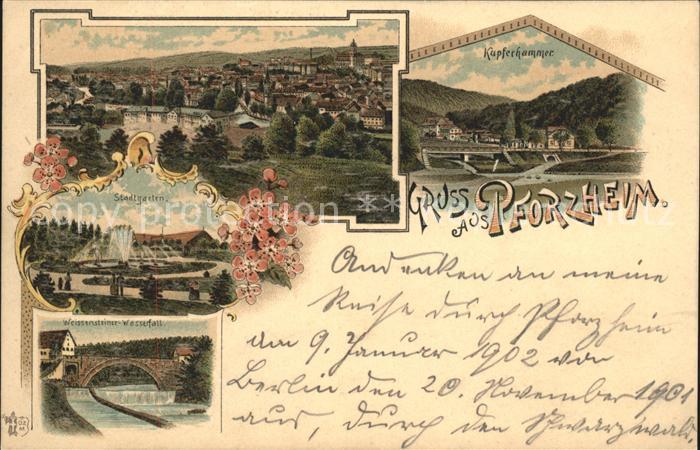 Kupferhammer.
Stadtgarten.
GRUSS AUS PFORZHEIM.
Weissensteiner-Wasserfall.
Andenken an meine
Reise durch Pforzheim
am 9. Januar 1902 von
Berlin den 20. November 1901
aus, durch den Schwarzwald,
copy protection ** copy protection